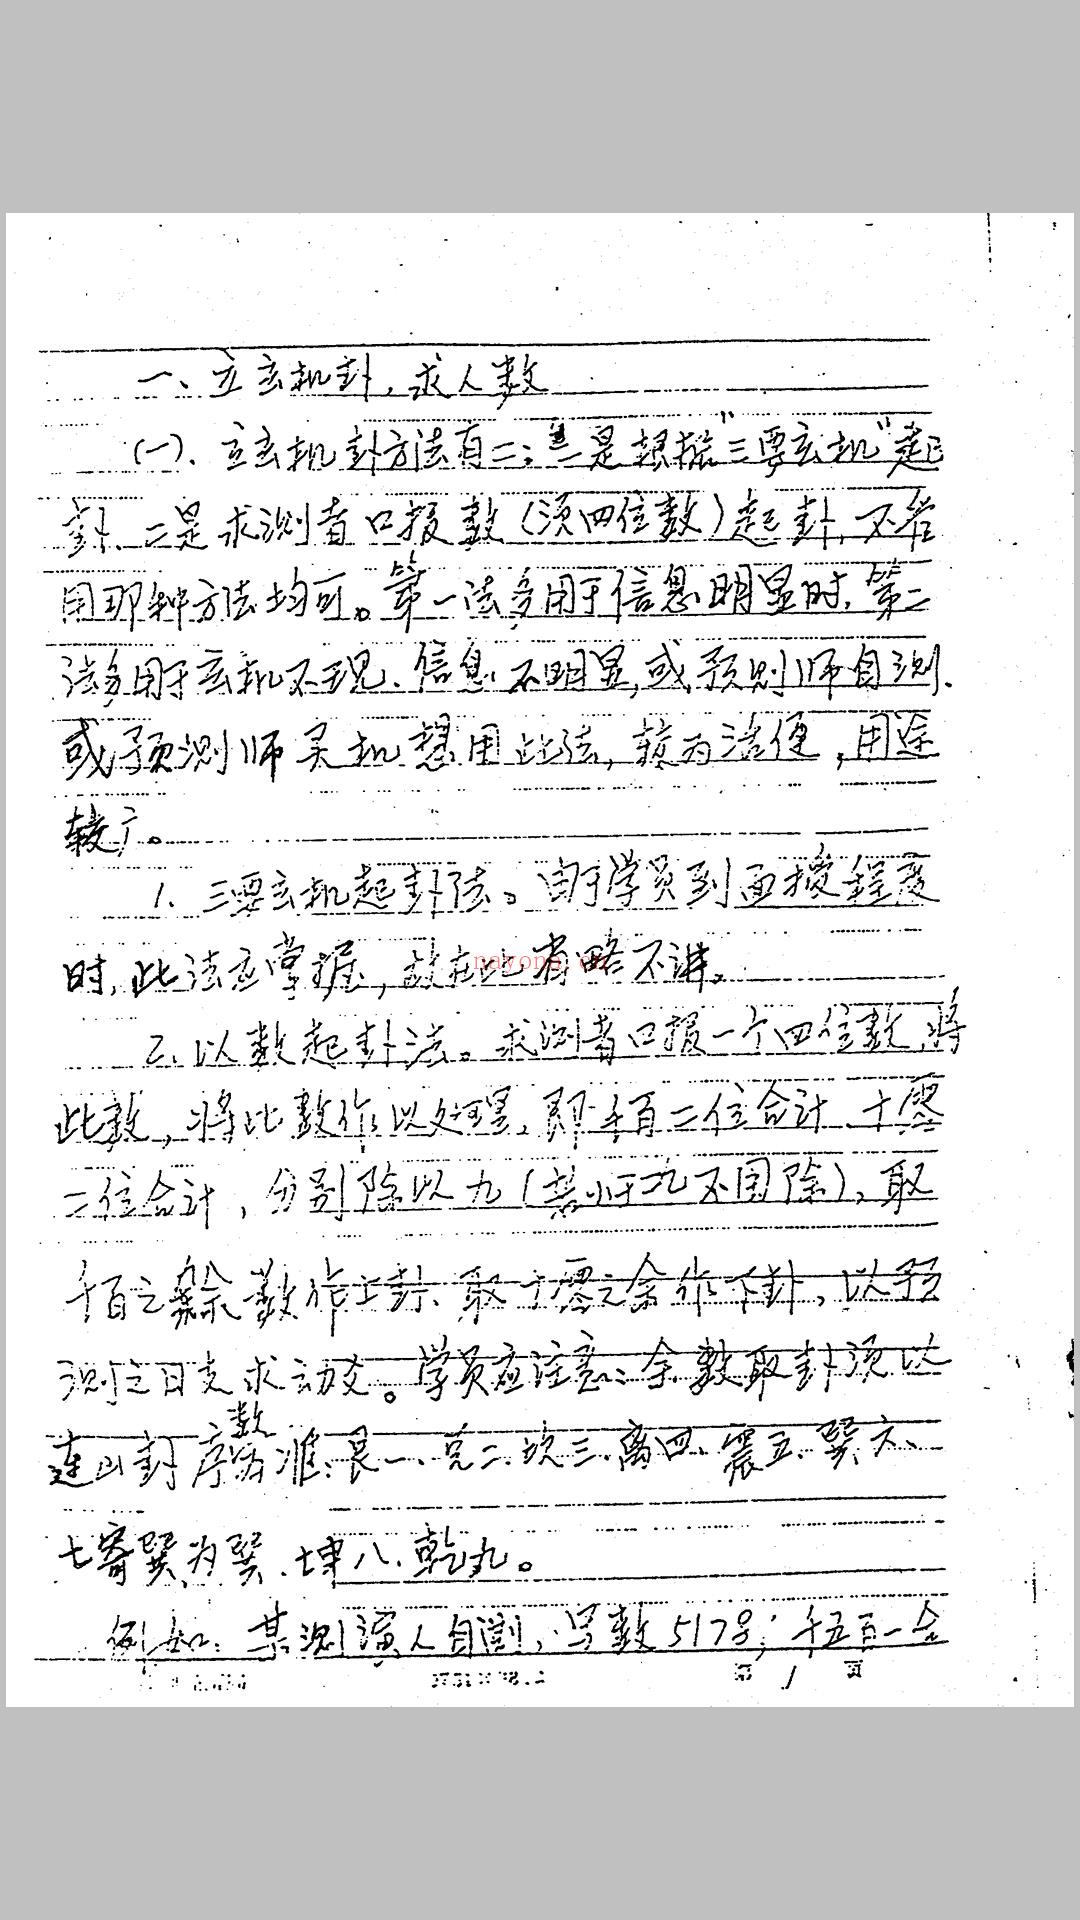 一、立玄机卦，求人数
(一)、立玄机卦方法有二：一是根据"三要玄机"起
卦、二是求测者口报数（须四位数）起卦，不管
用那种方法均可。第一法多用于信息明显时，第二
法多用于玄机不现、信息不明显，或预测师自测、
或预测师灵机想用此法，较为活便，用途
较广。
1、三要玄机起卦法。由于学员到面授程度
时，此法应掌握，故在此省略不讲。
nayona.cn
二、以数起卦法。求测者口报一个四位数，将
此数，将此数作以处理，即千百二位合计、十零
二位合计，分别除以九（若小于九不用除），取
千百之余数作上卦、取十零之余作下卦，以预
测之日支求动爻。学员应注意：余数取卦须以
连山卦序数为准：艮一、兑二、坎三、离四、震五、巽六、
七寄巽为巽、坤八、乾九。
例如：某测演人自测，写数5178；千五百一合
第 1 页